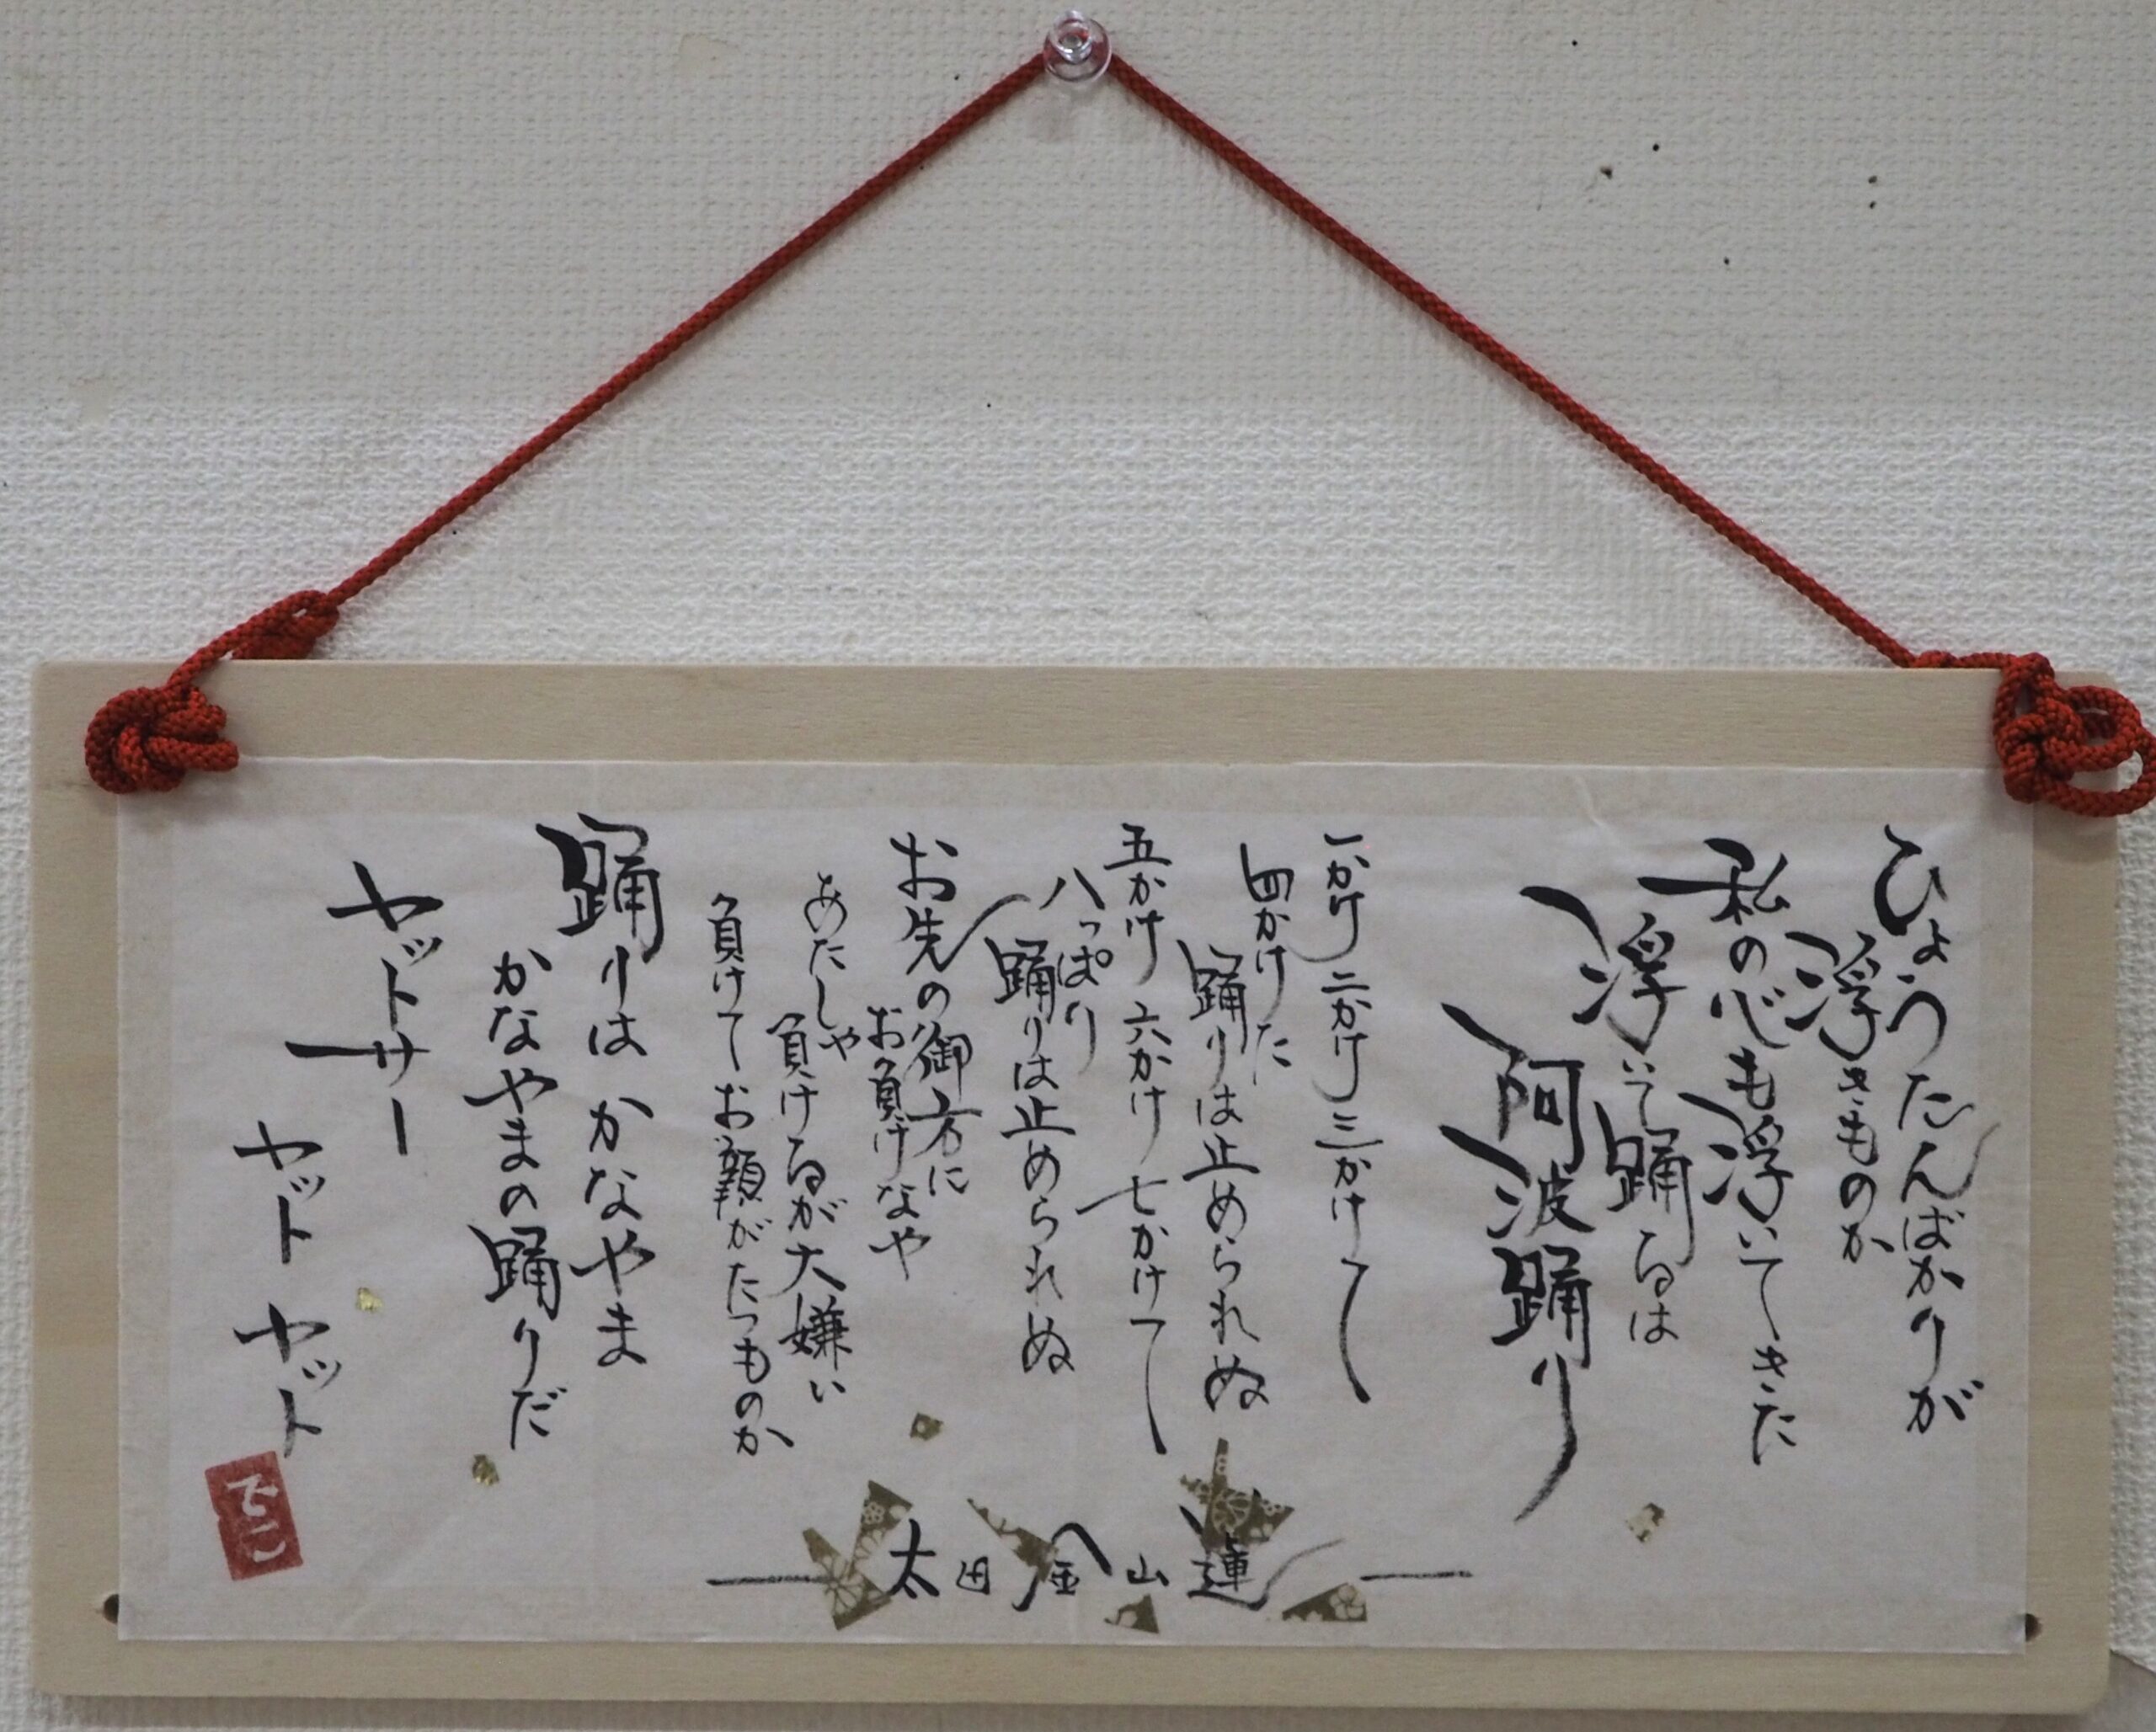 ひょうたんばかりが
浮きものか
私の心も浮いてきた
浮いて踊るは
阿波踊り
一かけ二かけ三かけて
四かけた
踊りは止められぬ
五かけ六かけ七かけて
八っぱり
踊りは止められぬ
お先の御方に
お負けなや
あたしゃ
負けるが大嫌い
負けてお顔がたつものか
踊りはかなやま
かなやまの踊りだ
ヤットサー
ヤット ヤット
でこ
太田金山連